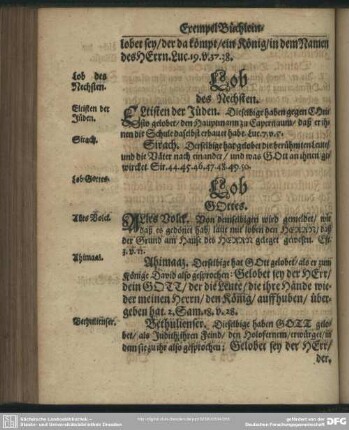 Exempel Büchlein
lobet sey/der da kömpt/ein König/in dem Namen
des HErrn. Luc. 19. v. 37. 38.
Lob des
Nechsten.
Lob
des Nechsten.
Eltisten der
Jüden.
ELtisten der Jüden. Dieselbige haben gegen CHri-
sto gelobet den Hauptmann zu Capernaum/ daß er ih-
nen die Schule daselbst erbauet habe. Luc. 7. v. 5.
Sirach.
Sirach. Derselbige hat gelobet die berühmten Leut/
und die Väter nach einander/ und was GOtt an ihnen ge-
wircket Sir. 44. 45. 46. 47. 48. 49. 50.
Lob Gottes.
Lob
GOttes.
Alles Volck.
ALles Volck. Von demselbigen wird gemeldet/ wie
daß es gedönet hab/ laut mit loben den HERRN/ daß
der Grund am Hauß des HERRN geleget gewesen. Esr.
3. v. 11.
Ahimaaz.
Ahimaaz. Derselbige hat GOtt gelobet/ als er zum
Könige David also gesprochen: Gelobet sey der HErr/
dein GOTT/ der die Leute/ die ihre Hände wie-
der meinen Herrn/ den König/ auffhuben/ über-
geben hat. 2. Sam. 18. v. 28.
Bethulienser.
Bethulienser. Dieselbige haben GOTT gelo-
bet/ als Judith ihren Feind/ den Holofernem/ erwürget/ in
dem sie zu ihr also gesprochen: Gelobet sey der HErr/
der,
Sächsische Landesbibliothek –
Staats- und Universitätsbibliothek Dresden
gefördert von der
Deutschen Forschungsgemeinschaft
DFG